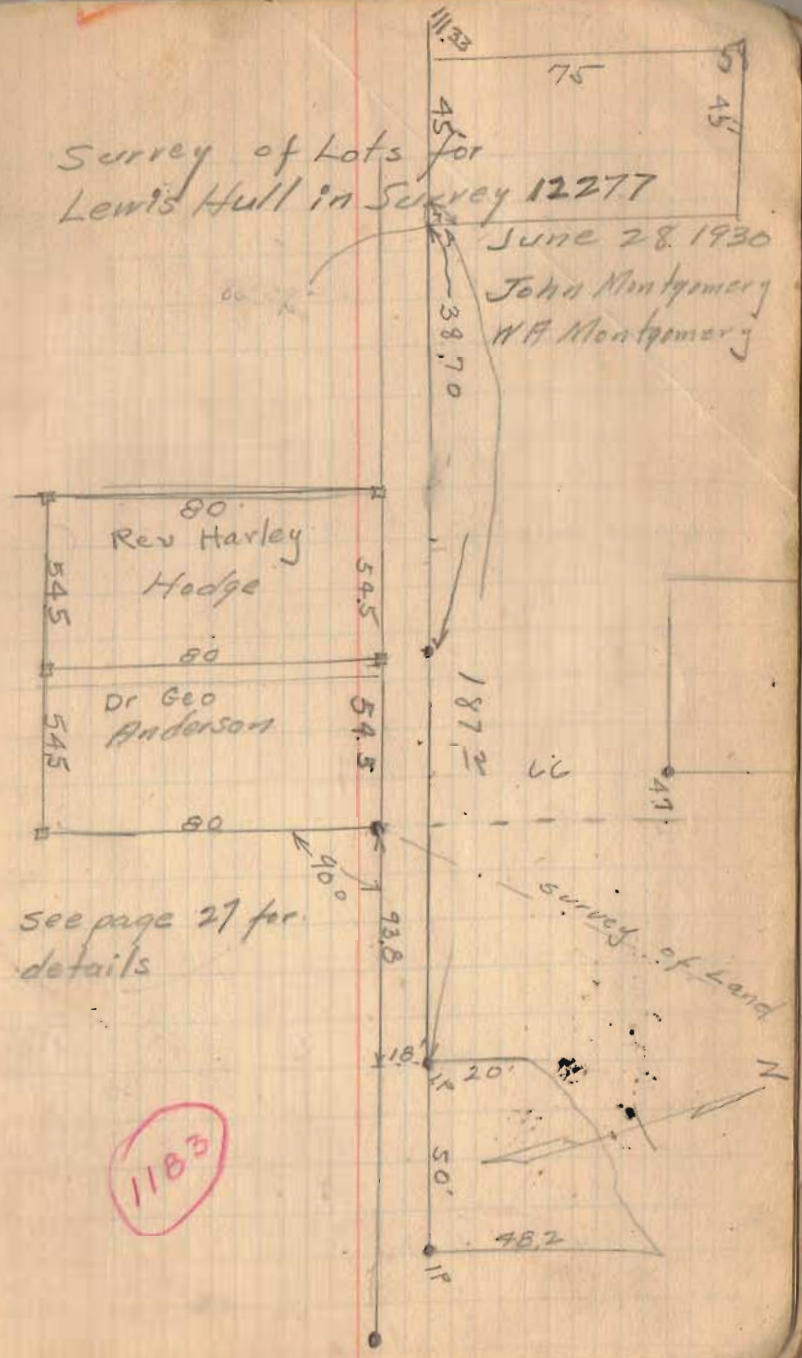 111.33
75
5
45
45'
Survey of Lots for
Lewis Hull in Survey 12277
June 28 1930
John Montgomery
WA Montgomery
38.70
80
Rev Harley
Hodge
54.5
54.5
80
Dr Geo
Anderson
54.5
54.5
187.2
66
47
80
90°
see page 27 for
details
93.8
survey of Land
18'
IP
20'
N
50'
1183
48.2
IP